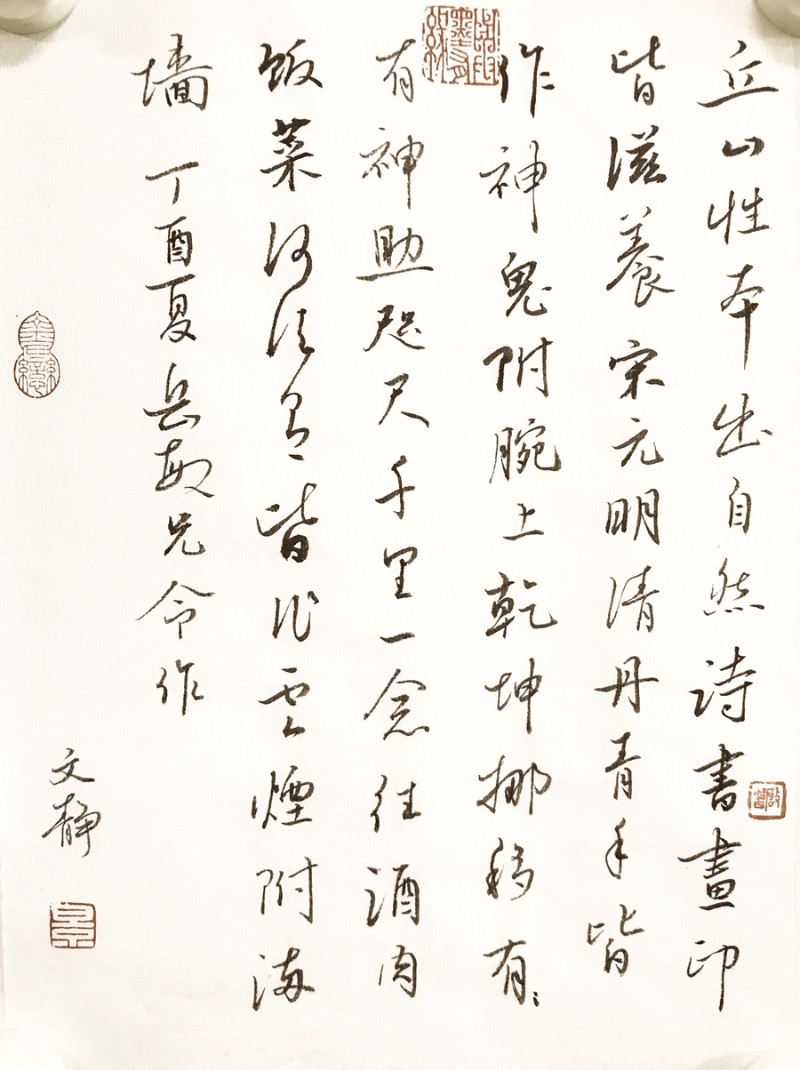 丘山性本出自然诗書畫印
皆滋養宋元明清丹青手皆
作神鬼附腕上乾坤挪移有〻
有神助咫尺千里一念往酒肉
飯菜何须皆化雲煙附满
墙 丁酉夏岳敏兄令作
文静